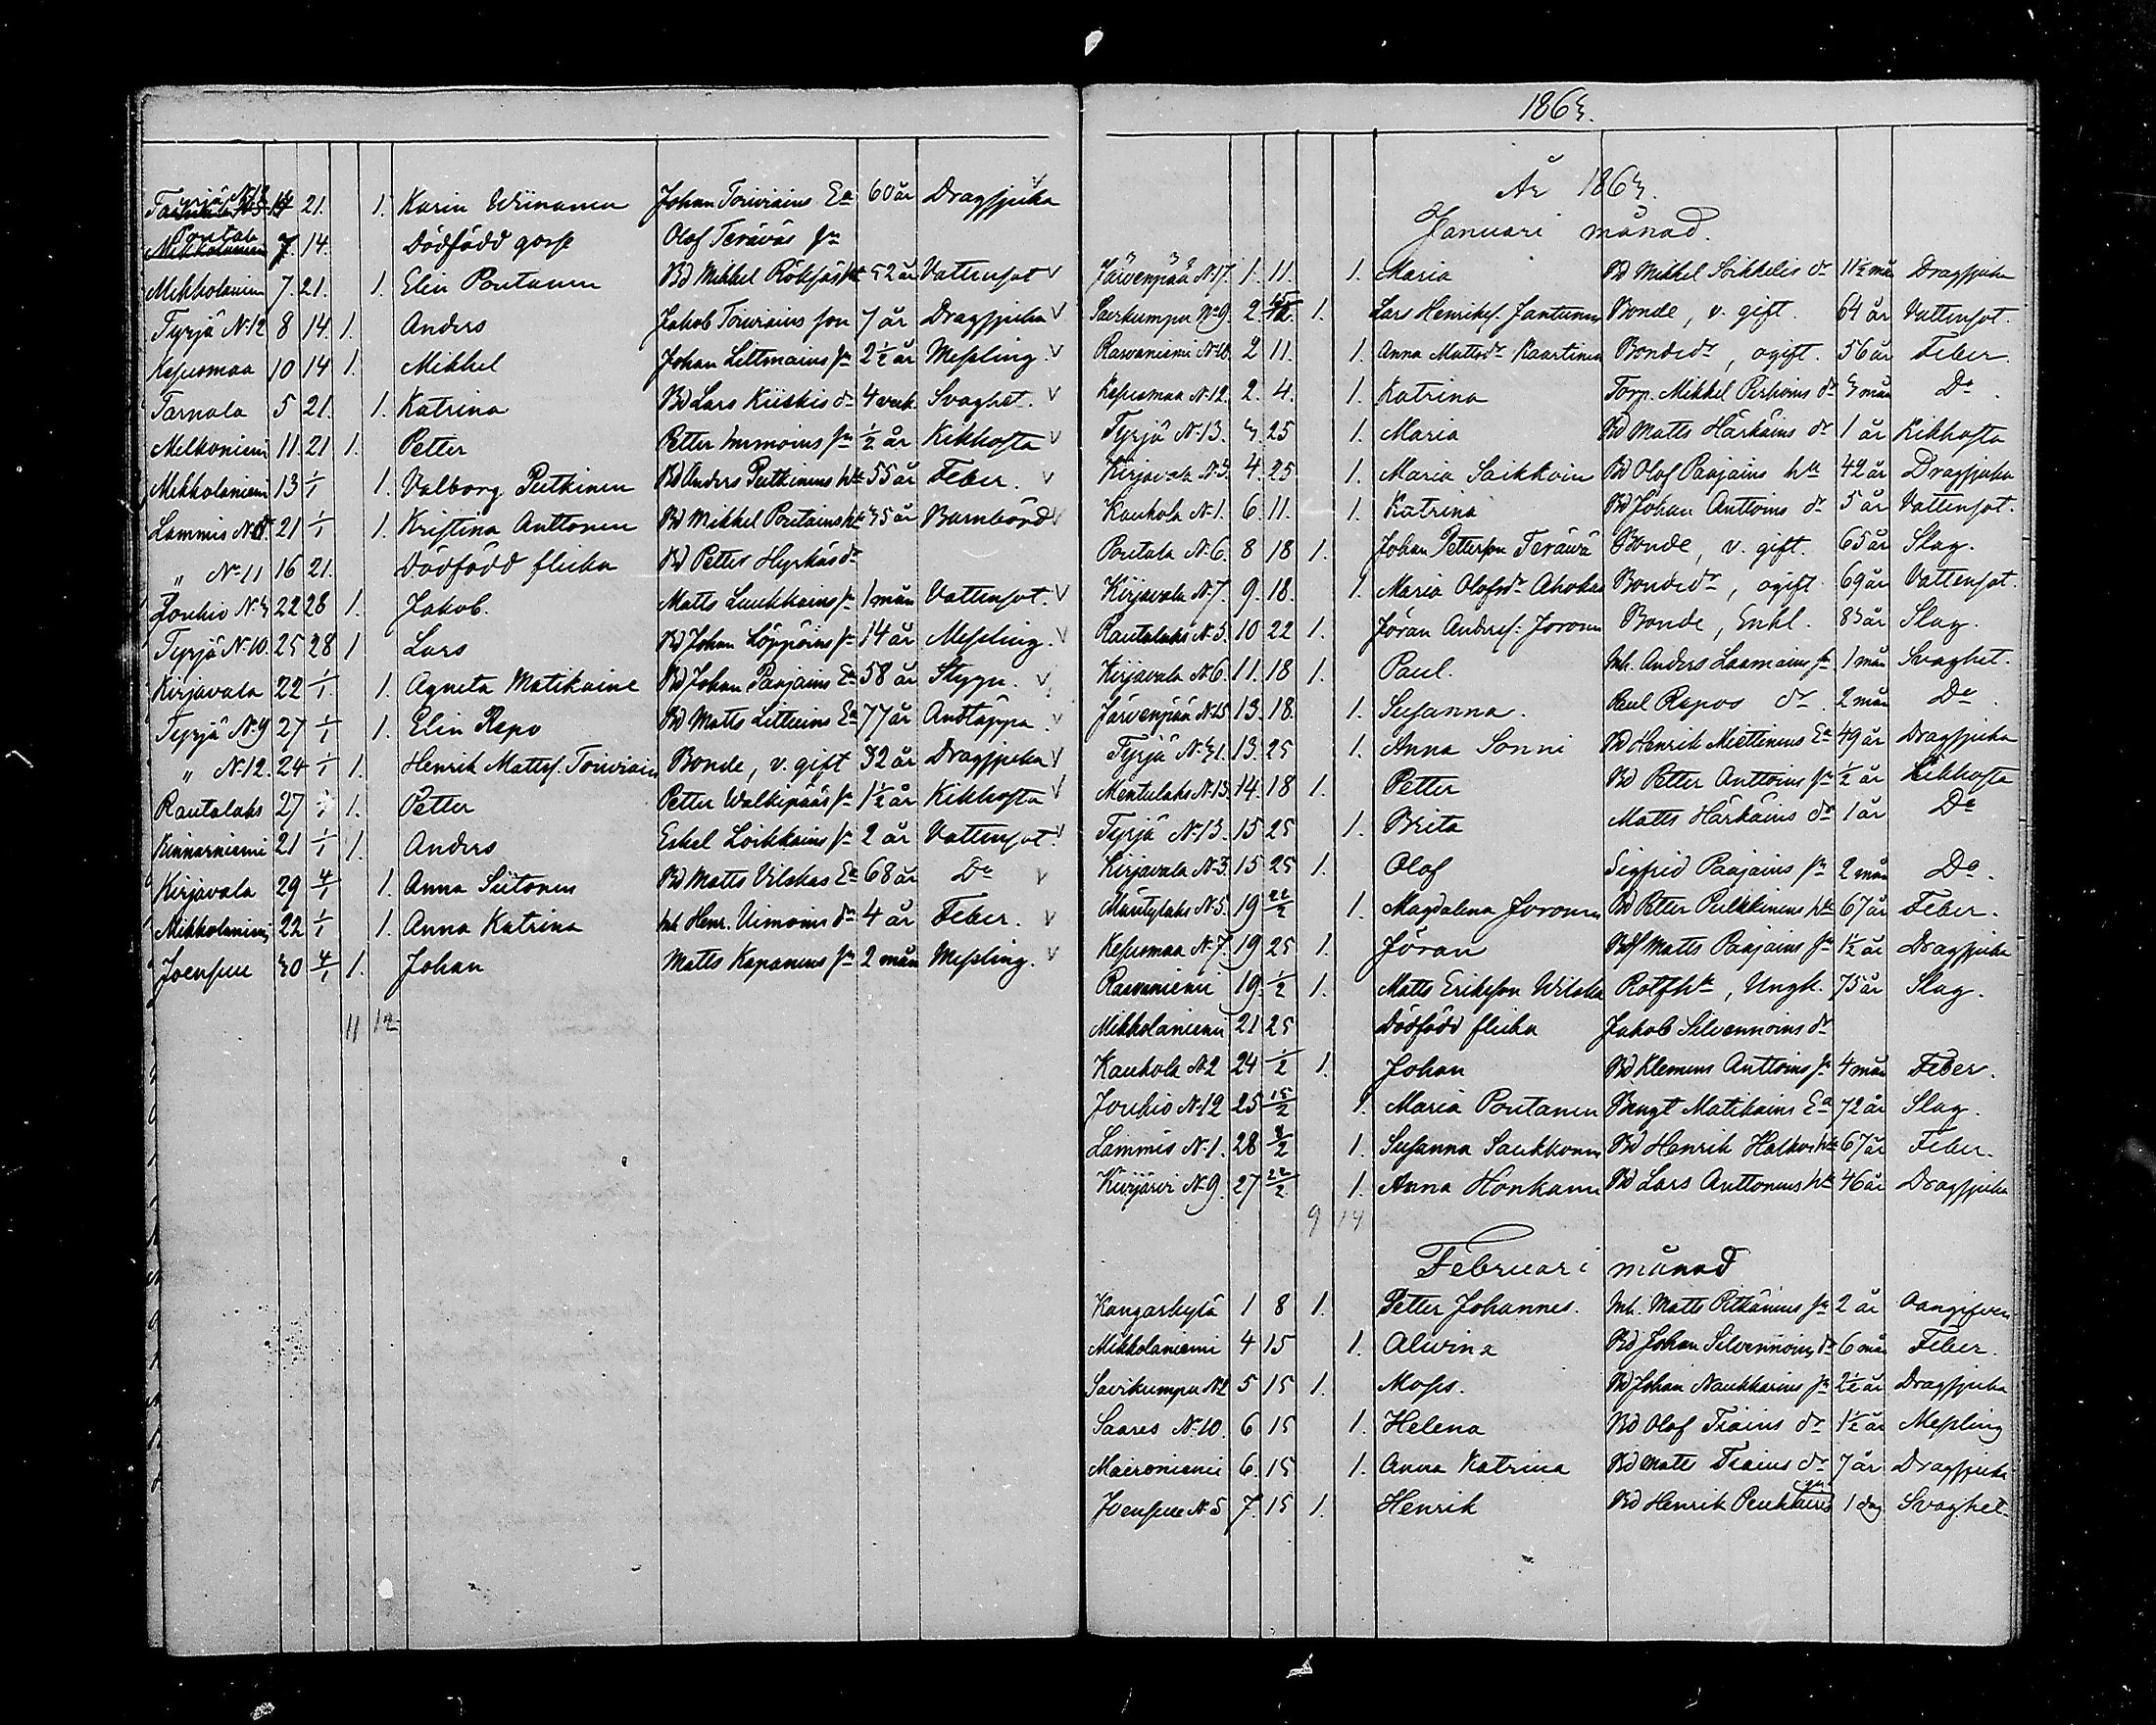 Tyrjä N.13 14 21. 1. Karin Wiinanen Johan Toiviains Ea 60 år Dragsjuka
Poutala 7. 14. Dödfödd gosse Olof Teräväs sn
Mikkolaniemi 7. 21. 1. Elin Poutanen Bd Mikkel Rökjäs ht 52 år Vattensot
Tyrjä N.12 8 14 1. Anders Jakob Toiviains son 7 år Dragsjuka
Kesusmaa 10 14 1. Mikkel Johan Littmains sn 2 1/2 år Messling
Tarnala 5 21. 1. Katrina Bd Lars Kiiskis dr 4 veck. Svaghet.
Melkoniemi 11. 21 1. Petter Petter Immoins sn 1/2 år Kikhosta
Mikkolaniemi 13 1/1 1. Valborg Putkinen Bd Anders Putkinens ht 55 år Feber.
Lammis N. 21 1/1 1. Kristina Anttonen Bd Mikkel Poutains ht 35 år Barnbörd
" No 11 16 21. Dödfödd flicka Bd Petter Hyrkäs dr
Joukio N.3 22 28 1. Jakob. Matts Luukkains sn 1 mån Vattensot.
Tyrjä N.10. 25 28 1 Lars Bd Johan Löppöins sn 14 år Messling.
Kirjavala 22 1/1 1. Agneta Matikaine Bd Johan Paajains Ea 58 år Stygn.
Tyrjä N.9 27 1/1 1. Elin Repo Bd Matts Littuins Ea 77 år Andtäppa
" N.12. 24 1/1 1. Henrik Mattss. Toiviain Bonde, v. gift 32 år Dragsjuka
Rautalaks 27 1/1 1. Petter Petter Walkipääs sn 1 1/2 år Kikhosta
Kinnarniemi 21 1/1 1. Anders Eskel Loikkains sn 2 år Vattensot.
Kirjavala 29 4/1 1. Anna Siitonen Bd Matts Vilskas Ea 68 år Do
Mikkolaniemi 22 1/1 1. Anna Katrina Inh Henr. Uimoins dr 4 år Feber.
Joensuu 30 4/1 1. Johan Matts Kapanens sn 2 mån Messling.
11 12
1863.
År 1863.
Januari månad.
Järvenpää N.17. 1. 11. 1. Maria Bd Mikkel Soikkelis dr 11 1/2 mån Dragsjuka
Saerkumpu No 9. 2. 1. Lars Henrikss. Jantunen Bonde, v. gift. 64 år Vattensot.
Rasvaniemi N.10. 2 11. 1. Anna Mattsdr Kaartinen Bondedr, ogift. 56 år Feber
Kesusmaa N.12. 2. 4. 1. Katrina Torp. Mikkel Pirhoins dr 3 mån Do.
Tyrjä N.13. 3. 25 1. Maria Bd Matts Härkäins dr 1 år Kikhosta
Kirjavala N.3. 4. 25 1. Maria Saikkoin Bd Olof Paajains ha 42 år Dragsjuka
Kaukola N.1. 6. 11. 1. Katrina Bd Johan Anttoins dr 5 år Vattensot.
Poutala N.6. 8 18 1. Johan Petterson Teräwä Bonde, v. gift. 65 år Slag.
Kirjavala N.7. 9. 18. 1. Maria Olofsdr Ahokas Bondedr, ogift 69 år Vattensot.
Rautalaks N.5. 10 22 1. Jöran Anderss. Joronen Bonde, Enkl. 83 år Slag.
Kirjavala N.6. 11. 18 1. Paul. Inh. Anders Laamains sn 1 mån Svaghet.
Järvenpää N.15 13. 18. 1. Susanna. Paul Repos dr. 2 mån Do.
Tyrjä N.31. 13. 25 1. Anna Sonni Bd Henrik Miettinens Ea 49 år Dragsjuka
Mentulaks N.13. 14. 18 1. Petter Bd Petter Anttoins sn 1/2 år Kikhosta
Tyrjä N.13. 15 25 1. Brita Matts Härkäins dr 1 år Do
Kirjavala N.3. 15 25 1. Olof Sigfrid Paajains sn 2 mån Do.
Mäntylaks N.5. 19 22/2 1. Magdalena Joronen Bd Petter Pulkkinens ht 67 år Feber.
Kesusmaa N.7. 19 25 1. Jöran Matts Paajains sn 1 1/2 år Dragsjuka
Rasvaniemi 19. 1/2 1. Matts Erikson Wilska Rotfht, Ungk. 75 år Slag.
Mikkolaniemi 21 25 Dödfödd flicka Jakob Silvennoins dr
Kaukola N.2 24 1/2 1. Johan Bd Klemens Anttoins sn 4 mån Feber.
Joukio N.12 25 15/2 1. Maria Poutanen Bengt Matikains Ea 72 år Slag.
Lammis N.1. 28 8/2 1. Susanna Saukkonen Bd Henrik Halkos ht 67 år Feber.
Kuijärvi N.9. 27 22/2 1. Anna Honkanen Bd Lars Anttonens ht 46 år Dragsjuka
9 14
Februari månad
Kangaskylä 1 8 1. Petter Johannes. Inh. Matts Pitkänens sn 2 år Oangifven
Mikkolaniemi 4 15 1. Alvina Bd Johan Silvennoins dr 6 mån Feber.
Savikumpu N.2 5 15 1. Moses. Bd Johan Naukkarins sn 2 1/2 år Dragsjuka
Saares N.10. 6 15 1. Helena Bd Olof Tiains dr 1 1/2 år Messling
Maironiemi 6. 15 1. Anna Katrina Bd Matts Tiains dr 7 år Dragsjuka
Joensuu N.5 7. 15 1. Henrik Bd Henrik Peukkuris sn 1 dag Svaghet